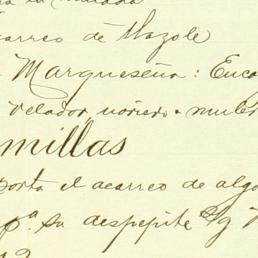 acarreo de Mazole
Marqueseña: Enca
Velador noriero
millas
porta el acarreo de algo
pª. su despepite